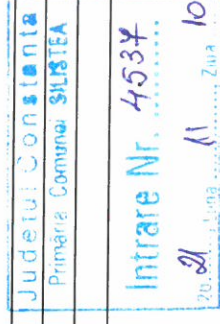 Judetul Constanta
Primăria Comunei SILISTEA
Intrare Nr. 4537
20 21 Luna 11 Ziua 10